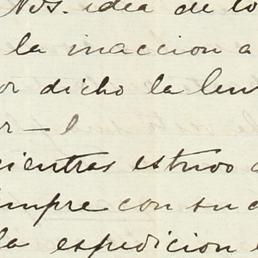 Nos. idea de lo
la inaccion a
or dicho la len
r - l
ientras estuvo
empre con su c
la espedicion e